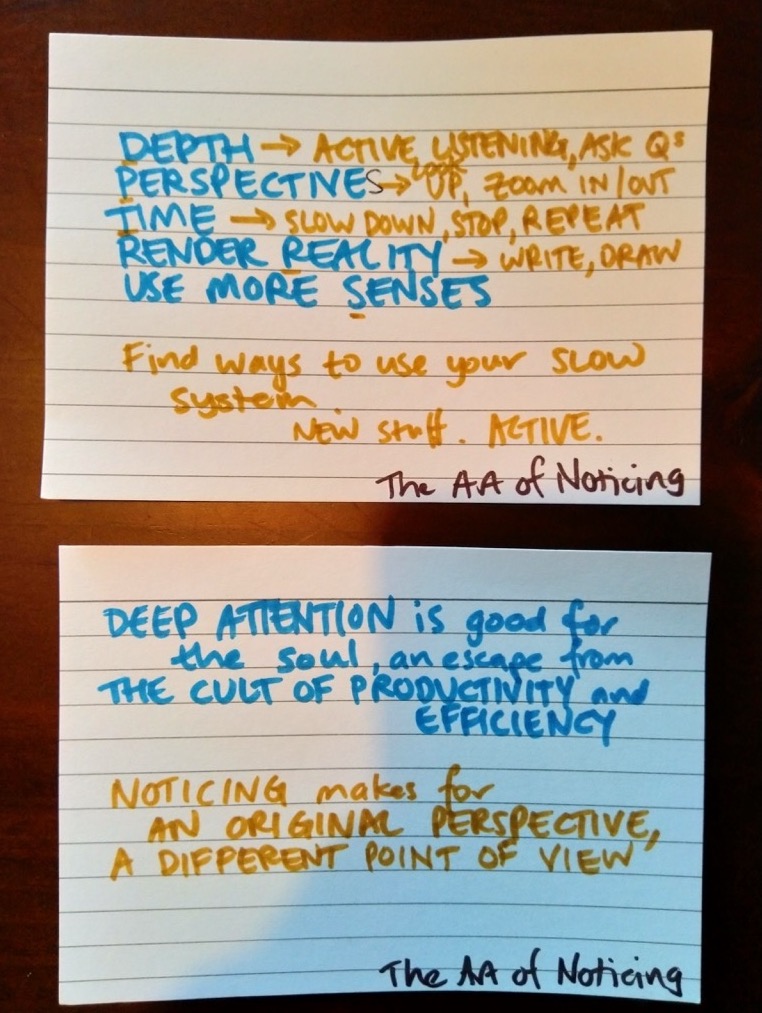 DEPTH → ACTIVE LISTENING, ASK Qs
PERSPECTIVES → LOOK UP, ZOOM IN/OUT
TIME → SLOW DOWN, STOP, REPEAT
RENDER REALITY → WRITE, DRAW
USE MORE SENSES
Find ways to use your SLOW
system
NEW stuff. ACTIVE.
The AA of Noticing
DEEP ATTENTION is good for
the soul, an escape from
THE CULT OF PRODUCTIVITY and
EFFICIENCY
NOTICING makes for
AN ORIGINAL PERSPECTIVE,
A DIFFERENT POINT OF VIEW
The AA of Noticing